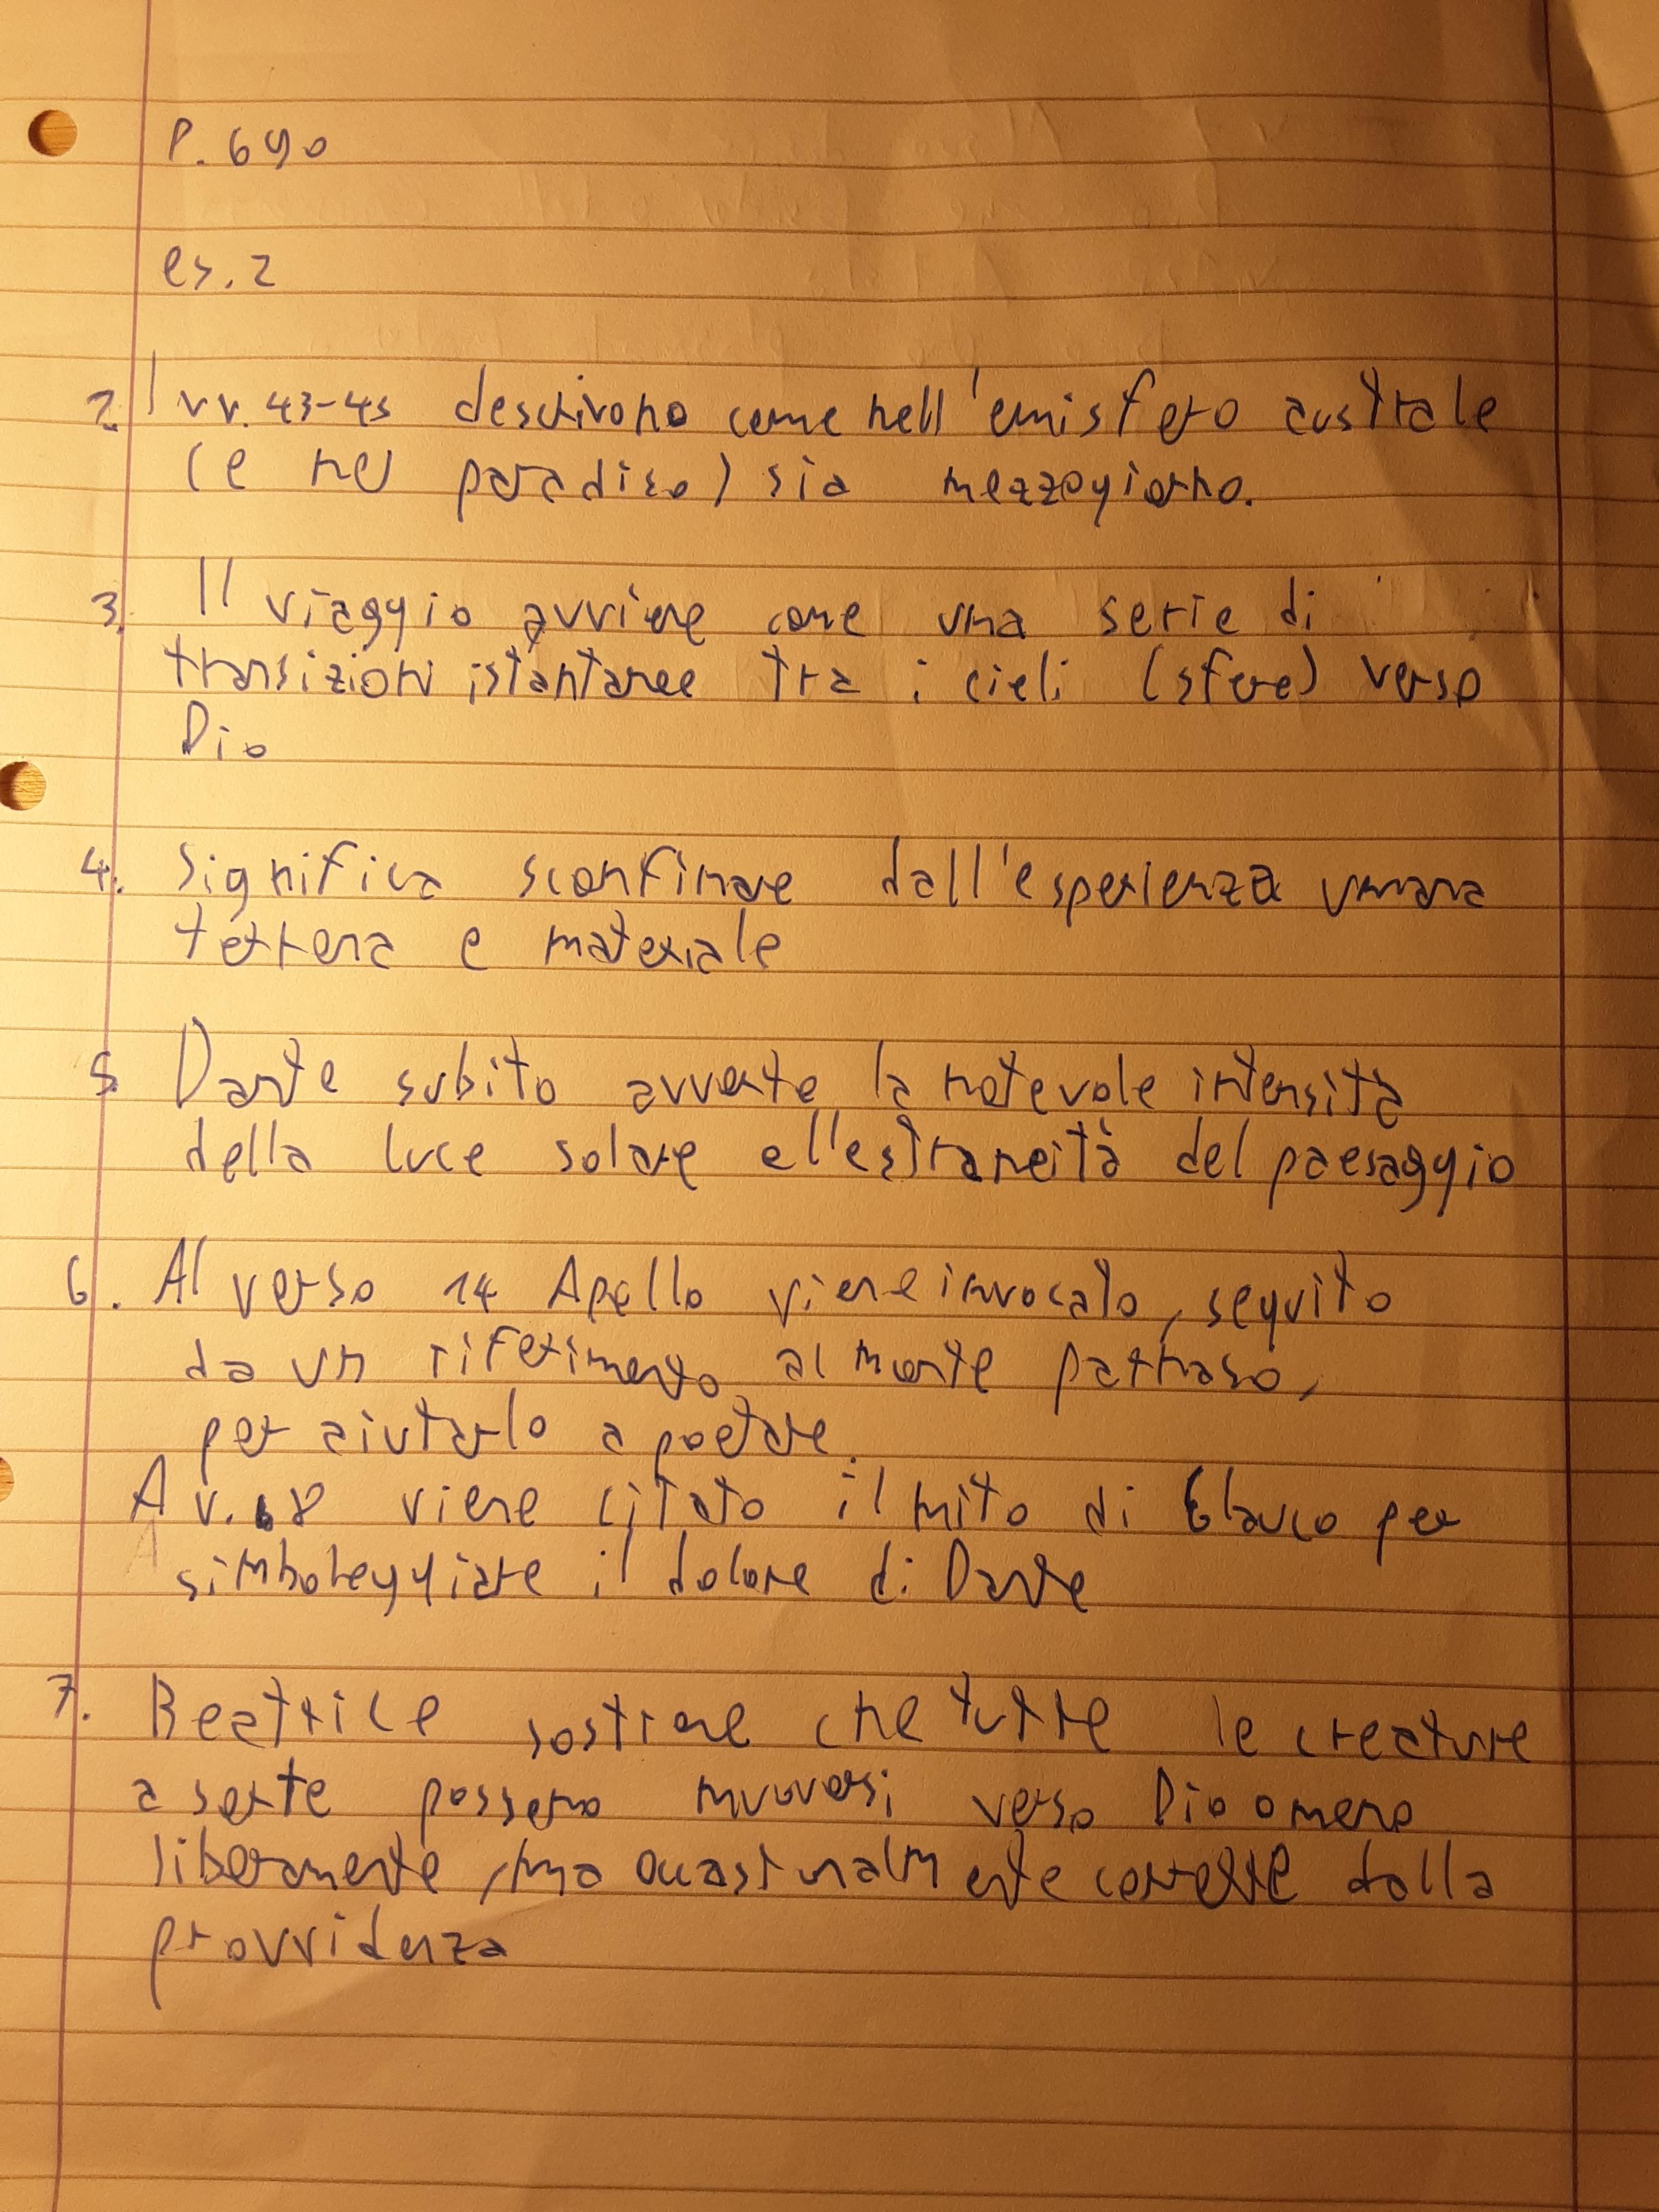 P. 690
es. 2
2. I vv. 43-45 descrivono come nell'emisfero australe
(e nel paradiso) sia mezzogiorno.
3. Il viaggio avviene come una serie di
transizioni istantanee tra i cieli (sfere) verso
Dio
4. Significa sconfinare dall'esperienza umana
terrena e materiale
5. Dante subito avverte la notevole intensità
della luce solare e l'estraneità del paesaggio
6. Al verso 14 Apollo viene invocato, seguito
da un riferimento al monte parnaso,
per aiutarlo a poetare.
A v. 68 viene citato il mito di Glauco per
simboleggiare il dolore di Dante
7. Beatrice sostiene che tutte le creature
a sorte possono muoversi verso Dio o meno
liberamente, ma occasionalmente corrette dalla
provvidenza